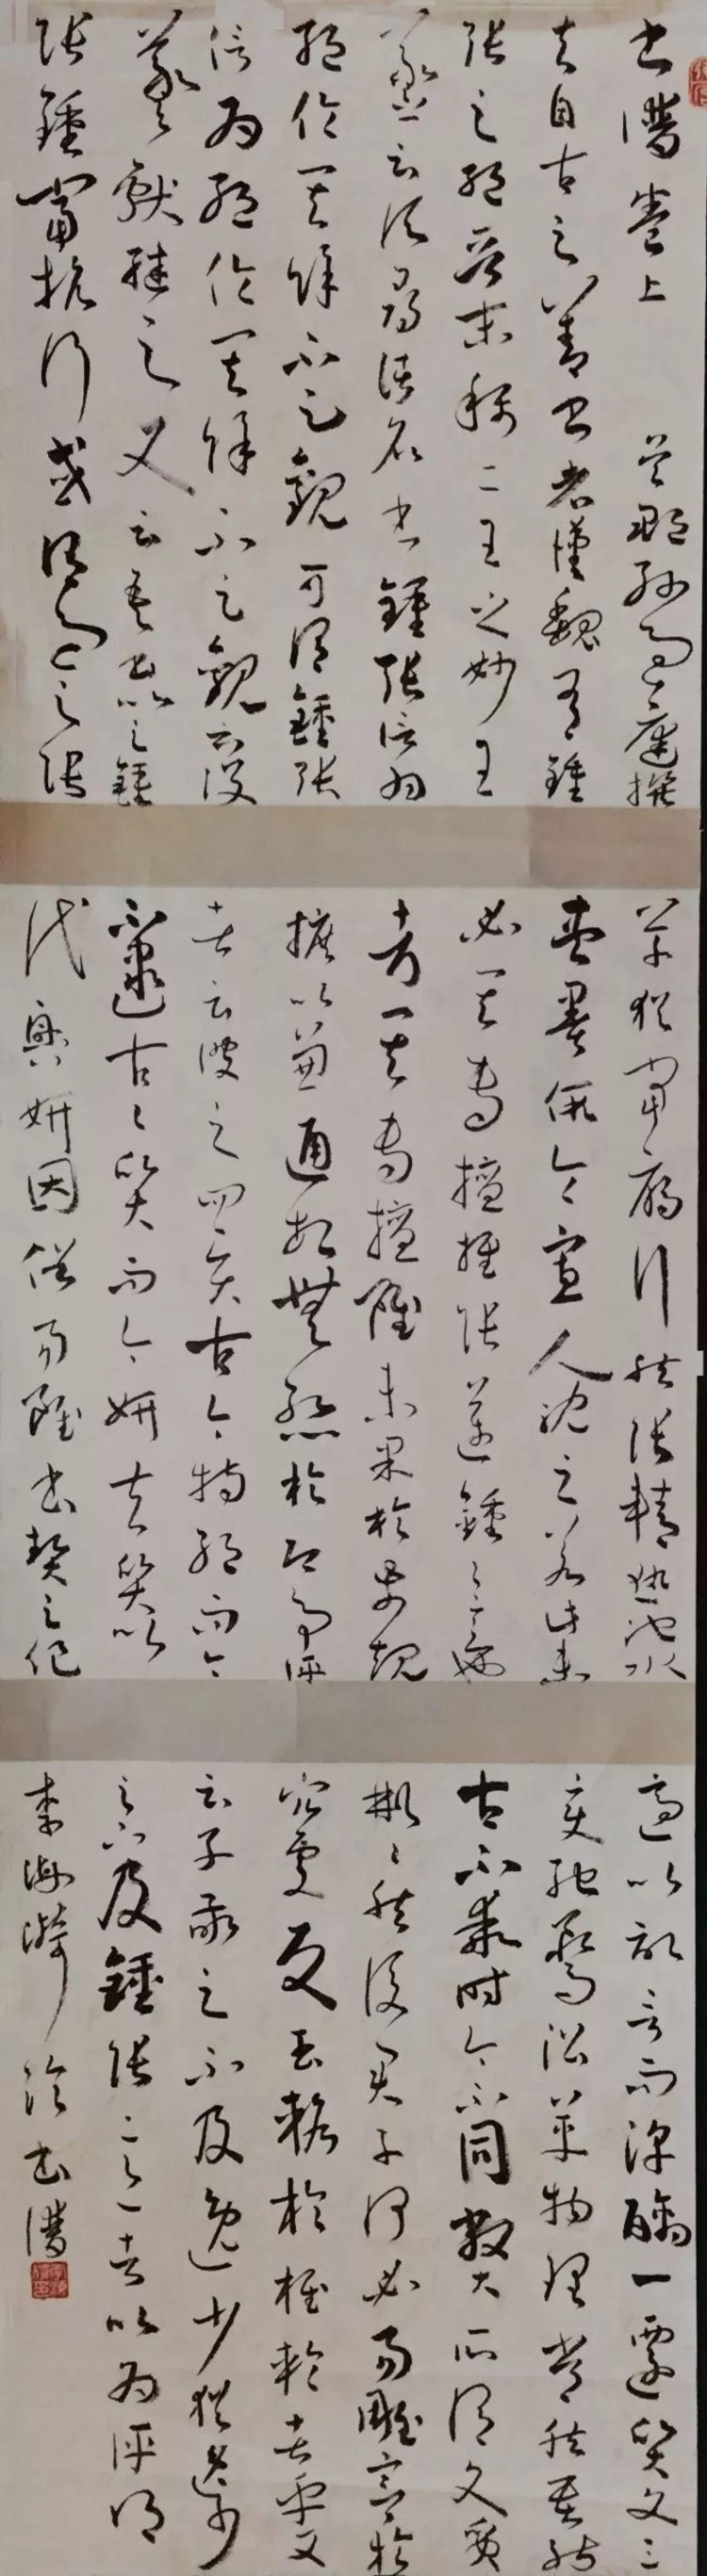 書譜卷上 吳郡孫過庭撰
夫自古之善書者漢魏有鍾
張之絕晉末稱二王之妙王
羲之云頃尋諸名書鍾張信為
絕倫其餘不足觀可謂鍾張
信為絕倫其餘不足觀云沒
羲獻繼之又云吾書比之鍾
張鍾當抗行或謂過之張
草猶當雁行然張精熟池水
盡墨假令寡人耽之若此未
必其專擅推張邁鍾之意也
考其專擅雖未果於前規
摭以兼通故無慚於即事評
者云彼之四賢古今特絕而今
不逮古古質而今妍夫質以
代興妍因俗易雖書契之作
適以記言而淳醨一遷質文三
變馳騖沿革物理常然貴能
古不乖時今不同弊所謂文質
彬彬然後君子何必易雕宮於
穴處反玉輅於椎輪者乎又
云子敬之不及逸少猶逸少
之不及鍾張意者以為評得
李海 臨書譜